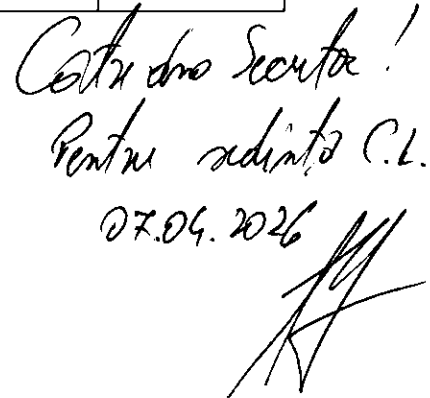 Către dna Secretar!
Pentru ședință C.L.
07.04.2026